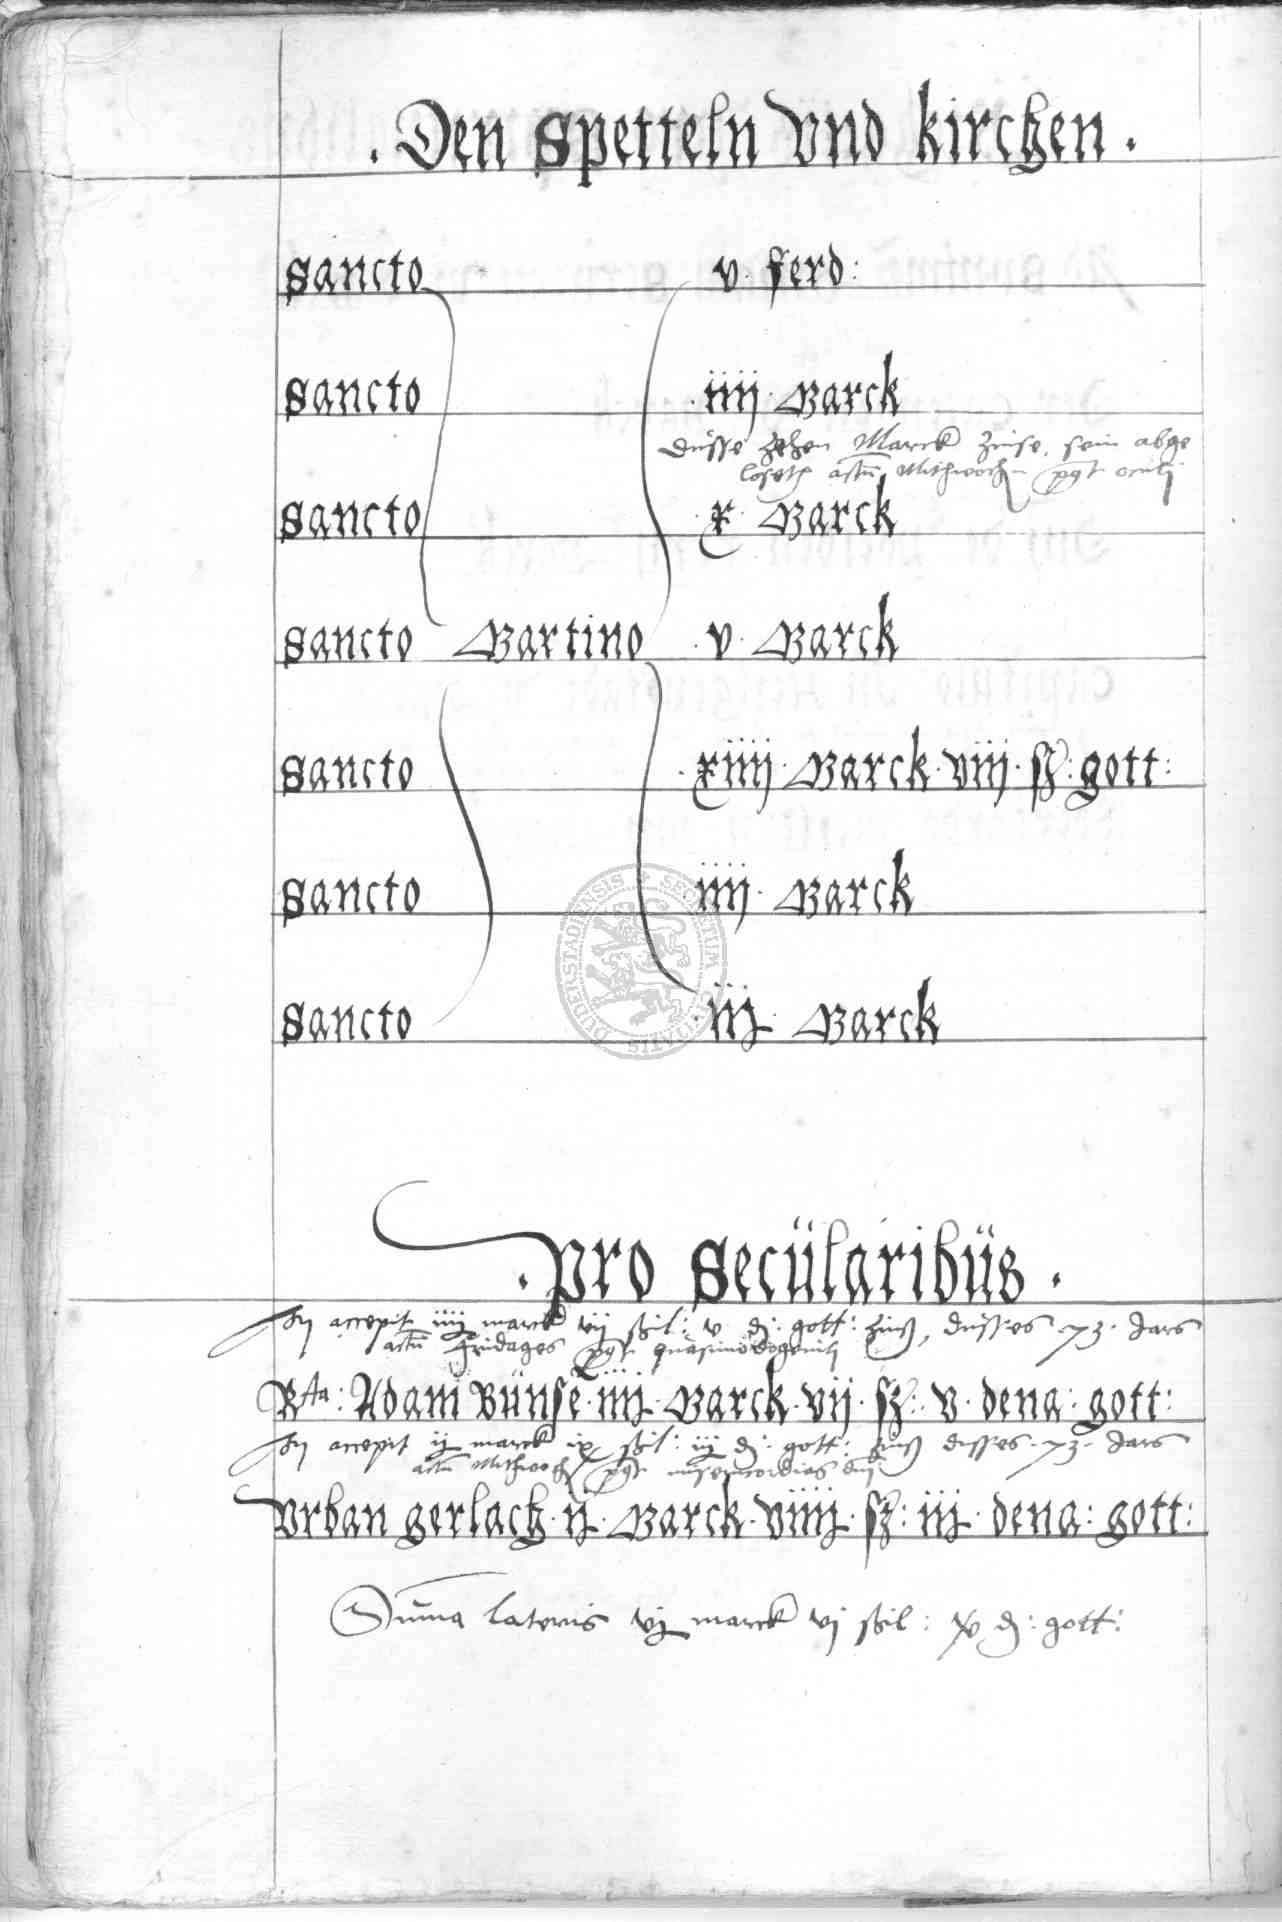 . Den Spetteln vnd kirchen .
Sancto v. ferd:
Sancto . iiij . Marck
Düsse zehen Marck zinse, sein abge
loseth actū Mithwochen post oculj
Sancto . x . Marck
Sancto Martino . v . Marck
Sancto . xiiij . Marck . viij . ß . gott:
Sancto iiij . Marck
Sancto . iij . Marck
. Pro Secülaribüs .
accepit iiij marck vij ßil: v d: gott: zinß, düsses 73 Jars
actū Fridages post quasimodogenitj
Rta: Adam Bünse . iiij . Marck . vij . ß: v . dena: gott:
accepit ij marck ix ßil: iij d: gott: zinß disses 73 Jars
actū Mithwoch post misericordias dnj
Vrban gerlach . ij . Marck . viiij . ß: iij . dena: gott:
Suma lateris vj marck vj ßil: xv d: gott:
DUDERSTADIENSIS SECRETUM CIVITATIS